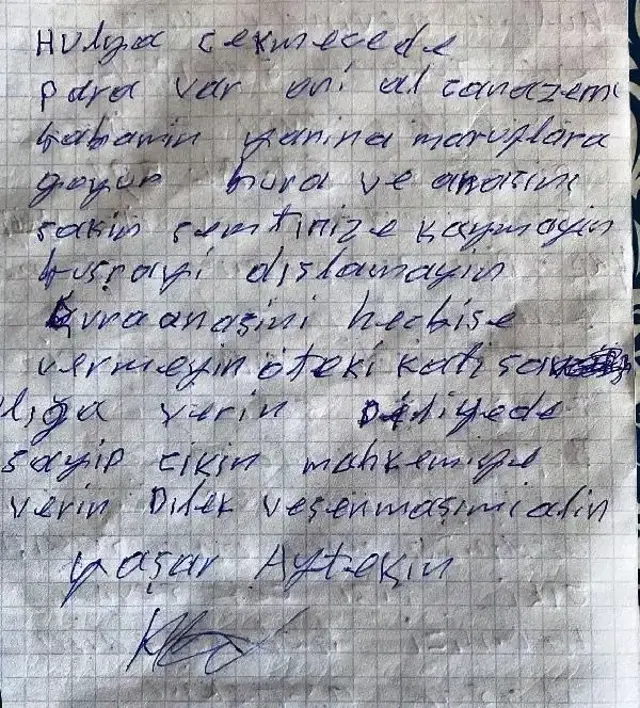 Hulya cekmecede
para var oni al canazemi
babamin yanina maruflara
goyun bura ve anasini
sakin semtinize kaymayin
kusrayi dislamayin
kura anasini hecbise
vermeyin öteki kati
liğa verin Deliyede
sayip cikin mahkemiye
verin Dilek veşenmaşimi alin
yaşar Aytekin